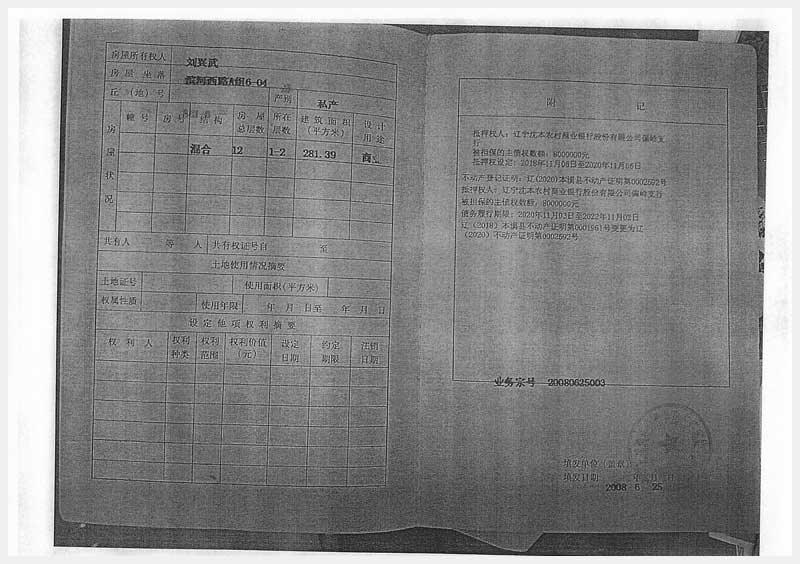 房屋所有权人 刘兴武
房屋坐落 滨河西路A组6-04
丘(地)号 产别 私产
房屋状况
幢号 房号 结构 房屋总层数 所在层数 建筑面积(平方米) 设计用途
混合 12 1-2 281.39 商
共有人 等 人 共有权证号自 至
土地使用情况摘要
土地证号 使用面积(平方米)
权属性质 使用年限 年 月 日至 年 月 日
设定他项权利摘要
权利人 权利种类 权利范围 权利价值(元) 设定日期 约定期限 注销日期
附 记
抵押权人:辽宁沈本农村商业银行股份有限公司偏岭支
行
被担保的主债权数额:8000000元
抵押权设定:2018年11月06日至2020年11月05日
不动产登记证明:辽(2020)本溪县不动产证明第0002592号
抵押权人:辽宁沈本农村商业银行股份有限公司偏岭支行
被担保的主债权数额:8000000元
债务履行期限:2020年11月03日至2022年11月02日
辽(2018)本溪县不动产证明第0001961号变更为辽
(2020)不动产证明第0002592号
业务宗号 20080625003
填发单位(盖章)
填发日期
2008 6 25